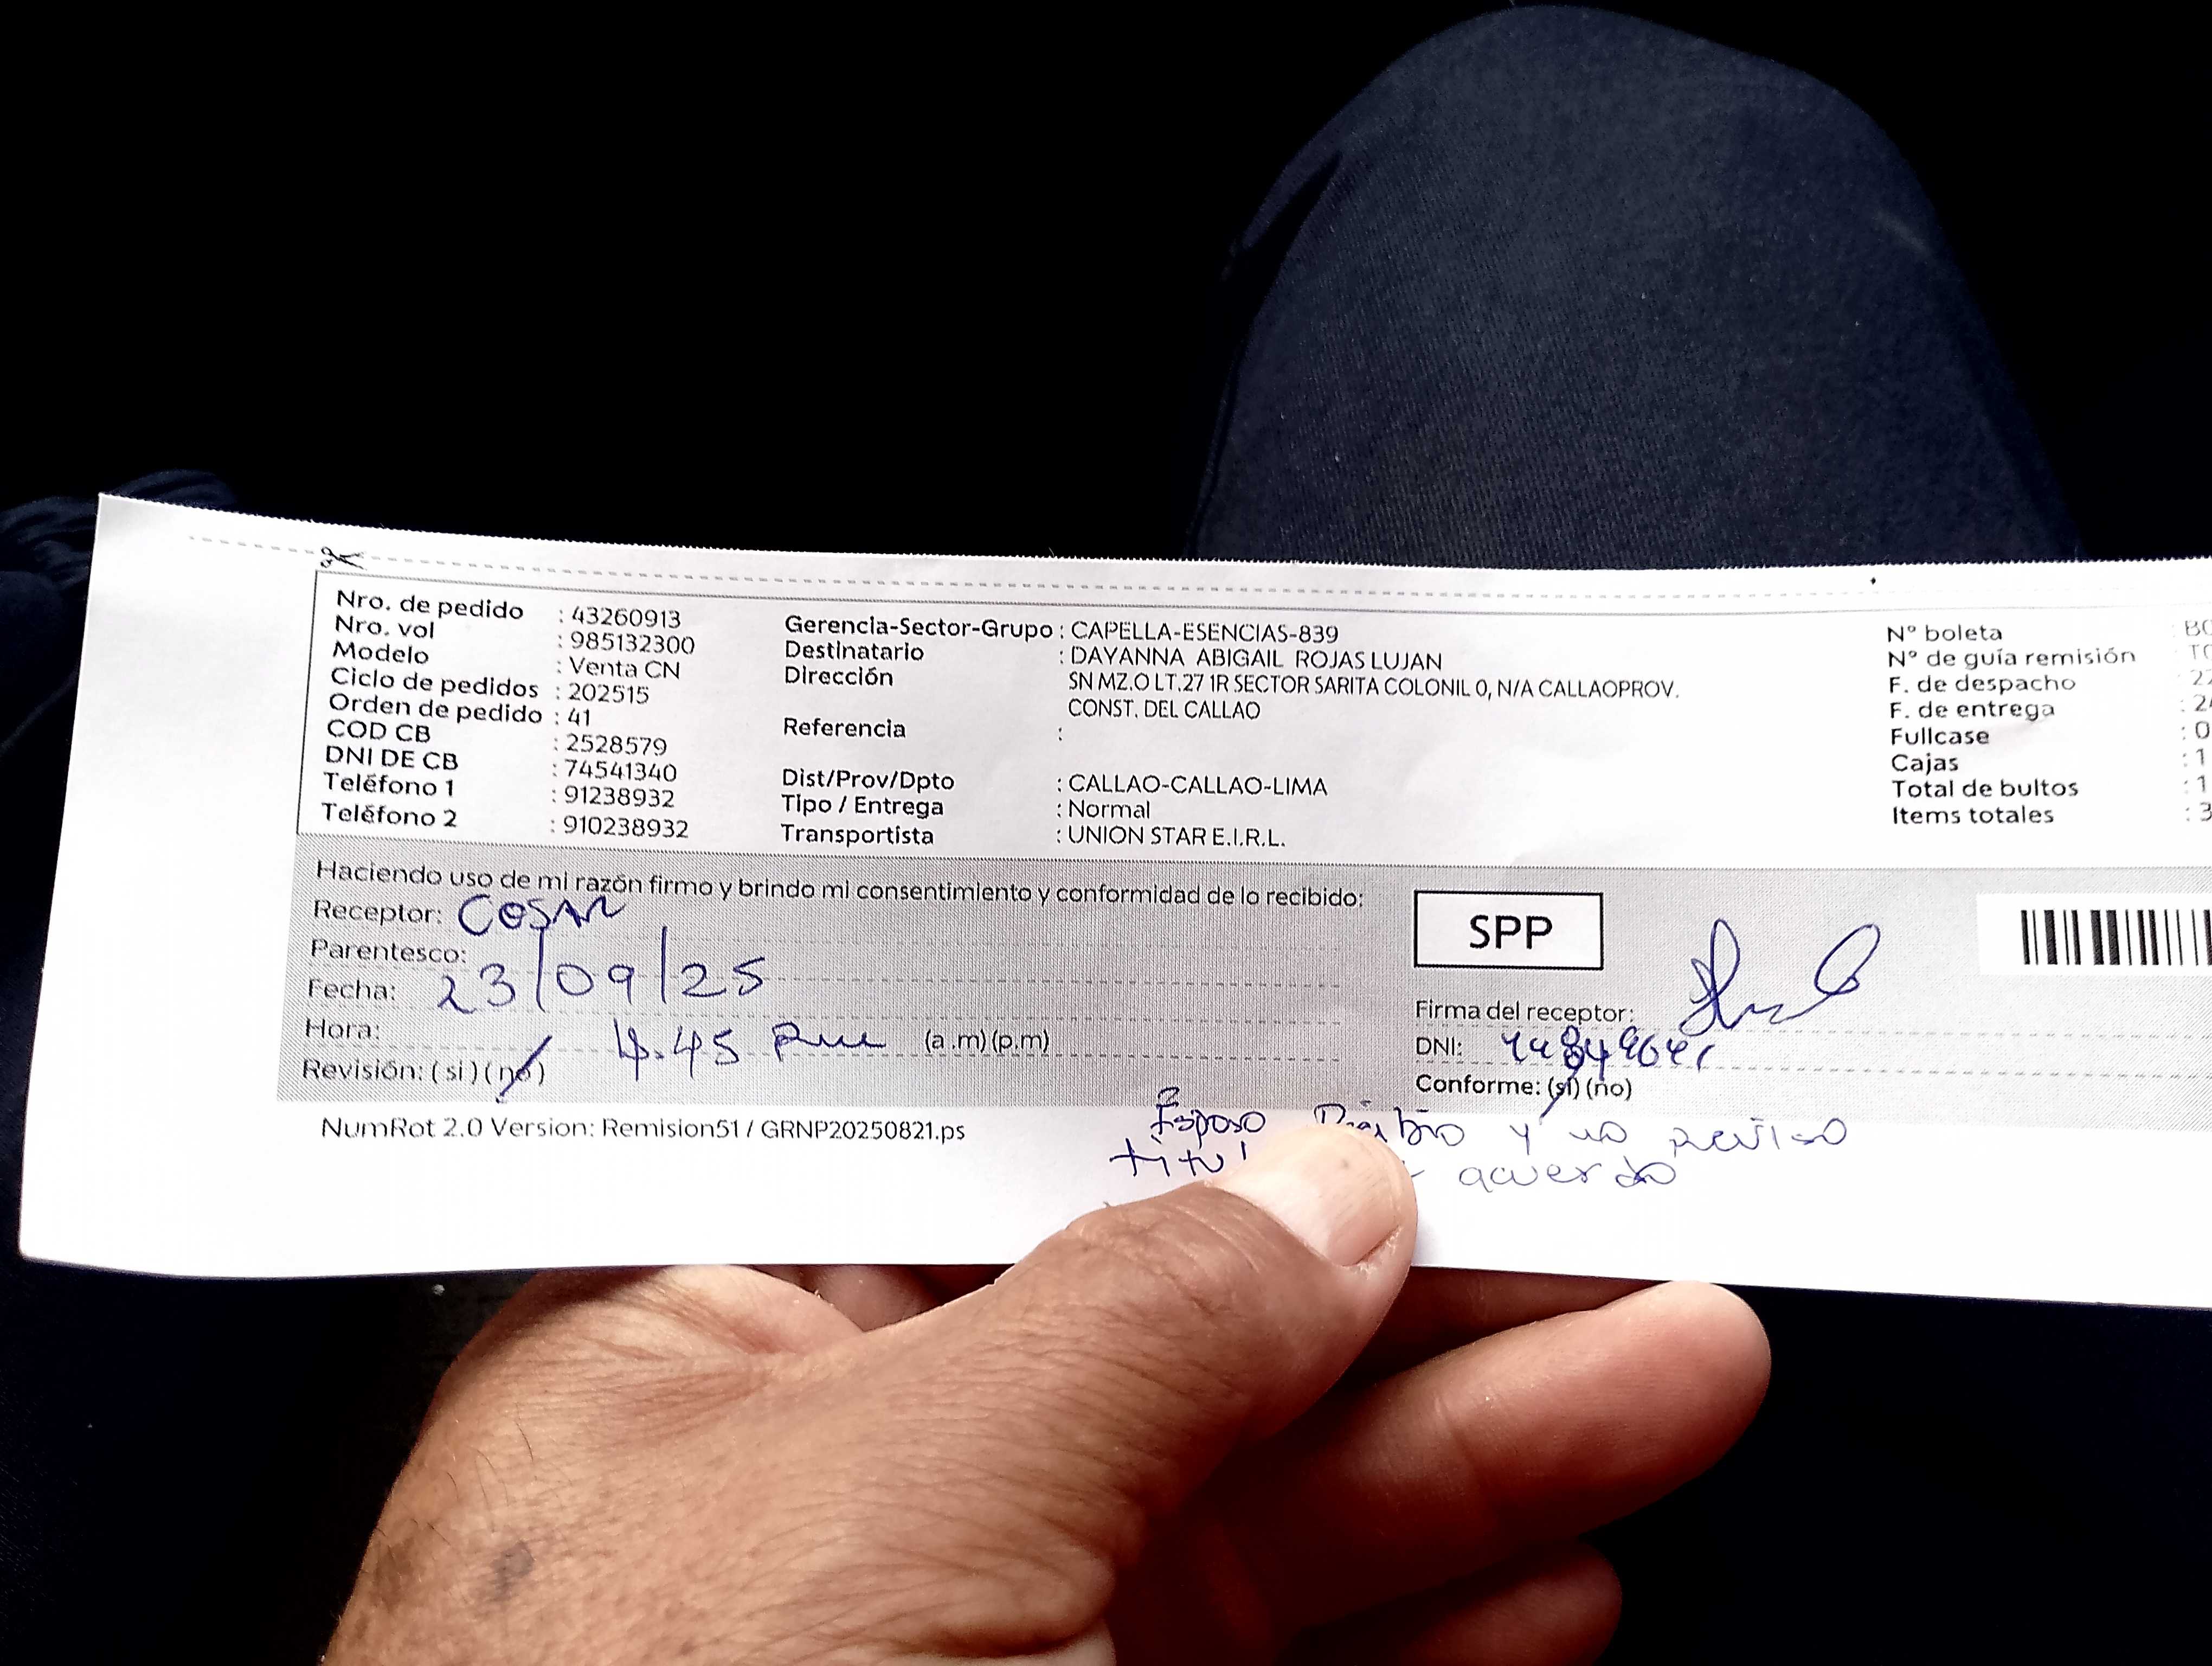 Nro. de pedido : 43260913
Nro. vol : 985132300
Modelo : Venta CN
Ciclo de pedidos : 202515
Orden de pedido : 41
COD CB : 2528579
DNI DE CB : 74541340
Teléfono 1 : 91238932
Teléfono 2 : 910238932
Gerencia-Sector-Grupo : CAPELLA-ESENCIAS-839
Destinatario : DAYANNA ABIGAIL ROJAS LUJAN
Dirección SN MZ.O LT.27 1R SECTOR SARITA COLONIL 0, N/A CALLAOPROV.
CONST. DEL CALLAO
Referencia :
Dist/Prov/Dpto : CALLAO-CALLAO-LIMA
Tipo / Entrega : Normal
Transportista : UNION STAR E.I.R.L.
N° boleta
N° de guía remisión
F. de despacho
F. de entrega
Fullcase : 0
Cajas : 1
Total de bultos : 1
Items totales : 3
Haciendo uso de mi razón firmo y brindo mi consentimiento y conformidad de lo recibido:
Receptor:
Parentesco:
Fecha: 23/09/25
Hora: 4.45 pm (a.m) (p.m)
Revisión: ( si ) ( no )
SPP
Firma del receptor:
DNI:
Conforme: (si) (no)
NumRot 2.0 Version: Remision51 / GRNP20250821.ps
Esposo y no reviso
acuerdo